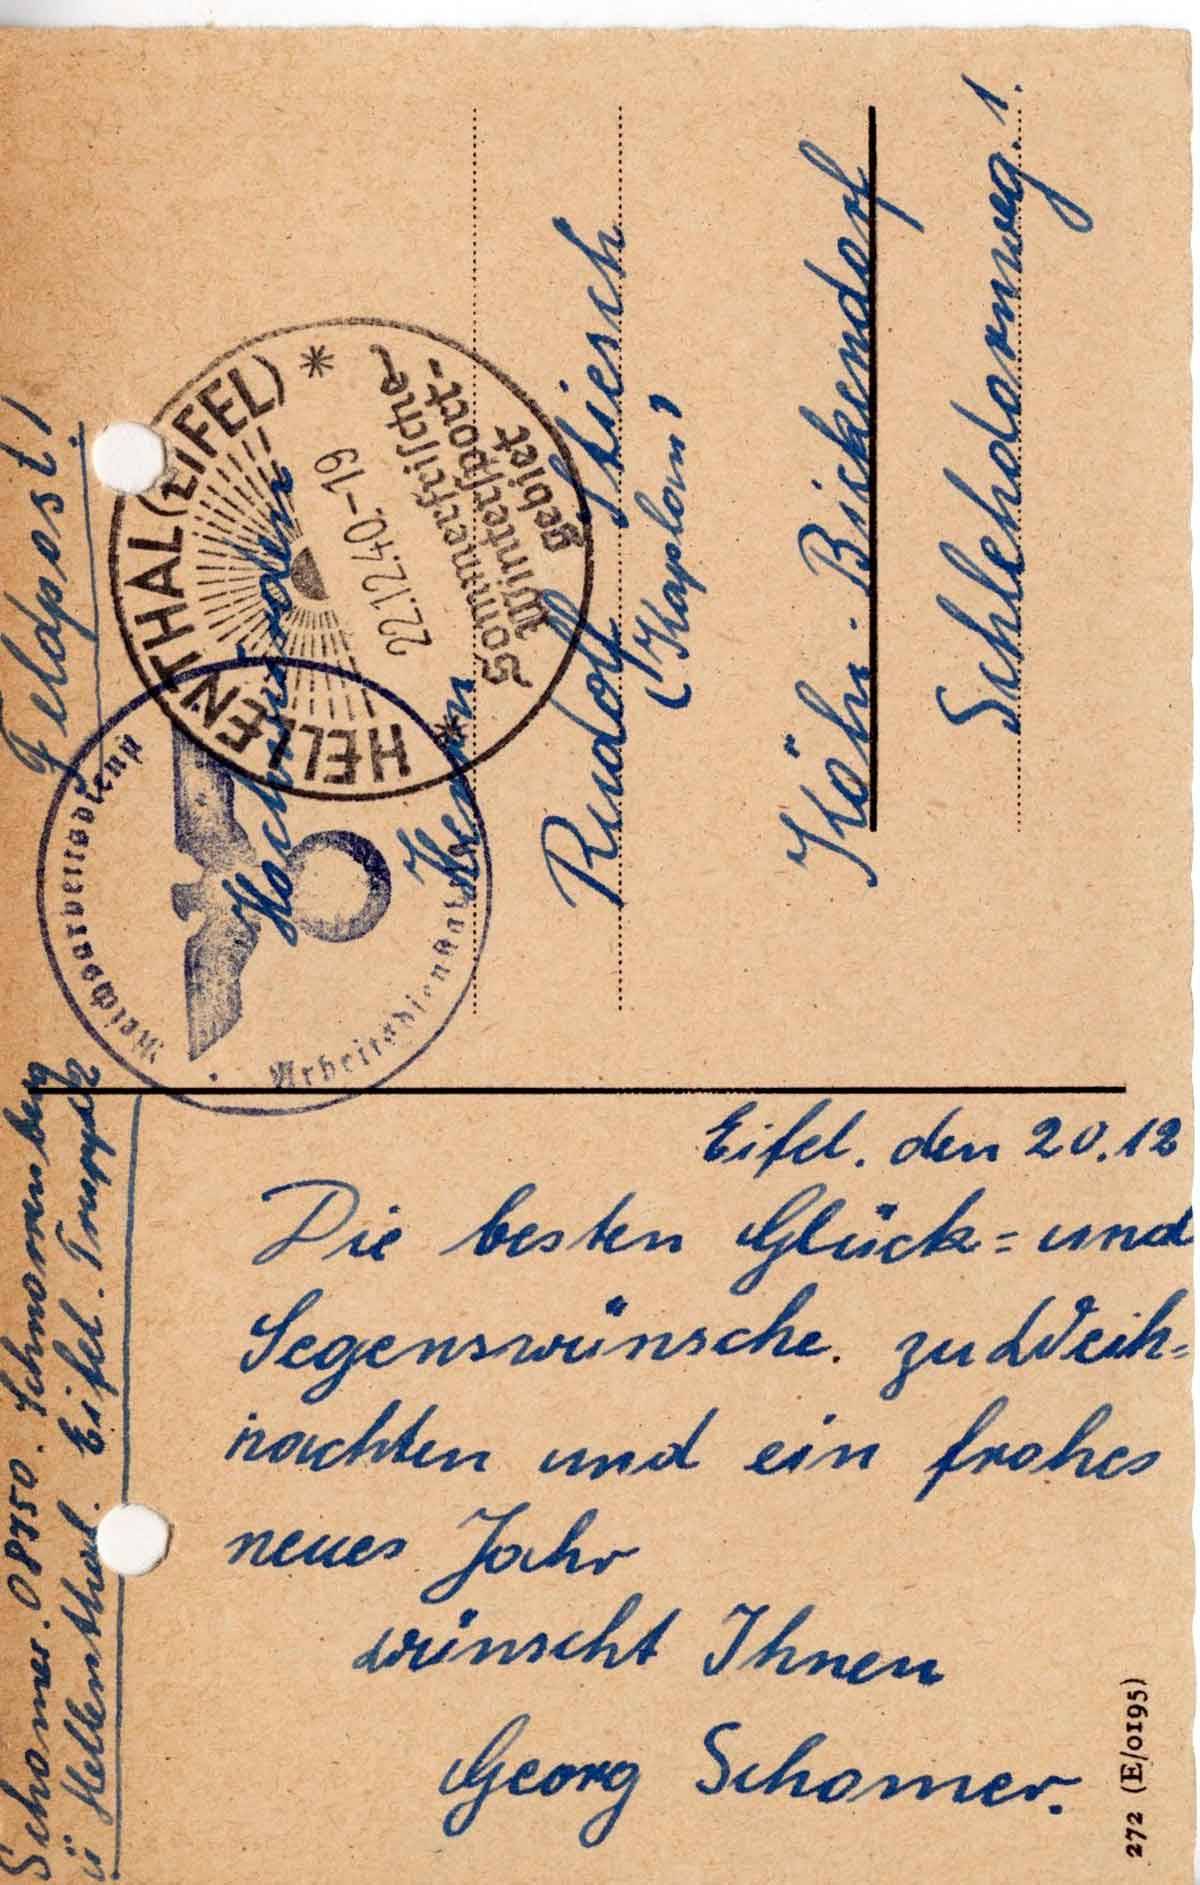 Feldpost!
HELLENTHAL (EIFEL)
22.12.40.-19
Sommerfrische
Wintersport-
gebiet
Reichsarbeitsdienst
Hochwürden
Herrn
Rudolf Stiesch
(Kaplan)
Köln. Bickendorf
Schlehdornweg. 1.
Schomer. O8750. Schmorrenberg
ü Hellenthal. Eifel. Trupp
Eifel. den 20.12
Die besten Glück= und
Segenswünsche. zu Weih=
nachten und ein frohes
neues Jahr
wünscht Ihnen
Georg Schomer.
272 (E/0195)